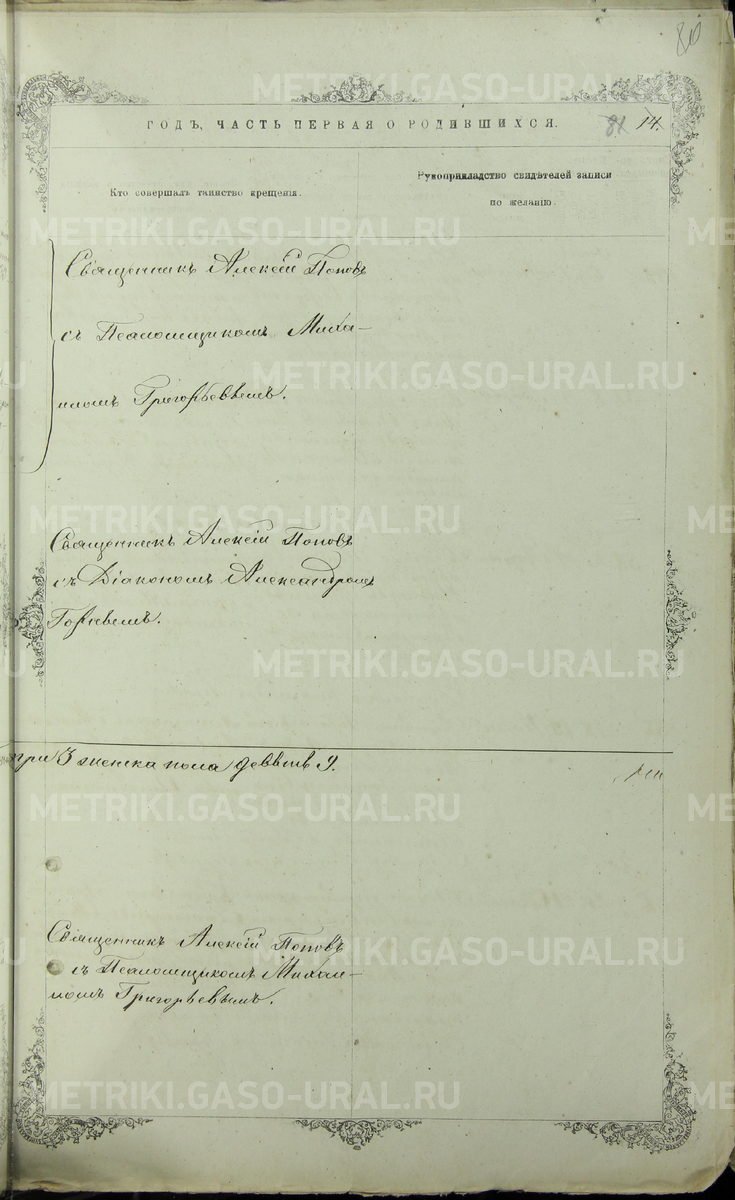 80
ГОДЪ, ЧАСТЬ ПЕРВАЯ О РОДИВШИХСЯ.
81 14.
Кто совершалъ таинство крещенія.
Рукоприкладство свидѣтелей записи
по желанію.
Священникъ Алексій Поповъ
съ Псаломщикомъ Миха-
иломъ Григорьевымъ.
Священникъ Алексій Поповъ
съ Діакономъ Александромъ
три 3 женска пола девять 9.
Священникъ Алексій Поповъ
съ Псаломщикомъ Михаи-
ломъ Григорьевымъ.
METRIKI.GASO-URAL.RU